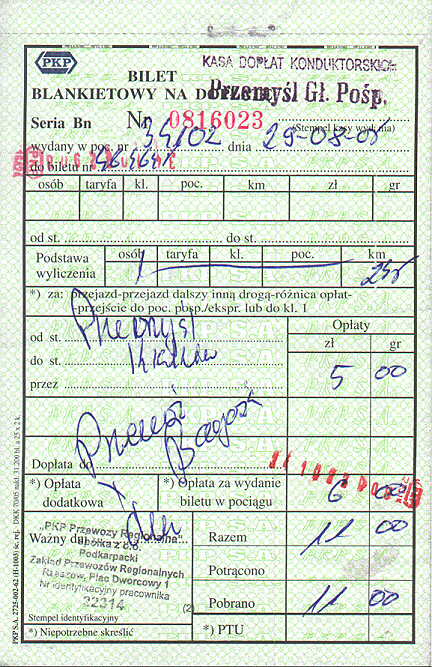 PKP
KASA DOPŁAT KONDUKTORSKICH
BILET
BLANKIETOWY NA DOPŁATĘ
Przemyśl Gł. Pośp.
Seria Bn Nr 0816023
(Stempel kasy wyd.)
wydany w poc. nr 34102 dnia 29-08-05
do biletu nr
osób taryfa kl. poc. km zł gr
od st. do st.
Podstawa wyliczenia
osób taryfa kl. poc. km
1
*) za: przejazd-przejazd dalszy inną drogą-różnica opłat-
przejście do poc. posp./ekspr. lub do kl. 1
od st. Przemyśl
Opłaty
zł gr
do st. Kraków
przez
5 00
Dopłata do
*) Opłata dodatkowa
*) Opłata za wydanie biletu w pociągu
6 00
Ważny dni
Razem 11 00
Potrącono
Pobrano 11 00
"PKP Przewozy Regionalne"
Spółka z o.o.
Podkarpacki
Zakład Przewozów Regionalnych
Rzeszów, Plac Dworcowy 1
Nr identyfikacyjny pracownika
22314
(2)
Stempel identyfikacyjny
*) Niepotrzebne skreślić
*) PTU